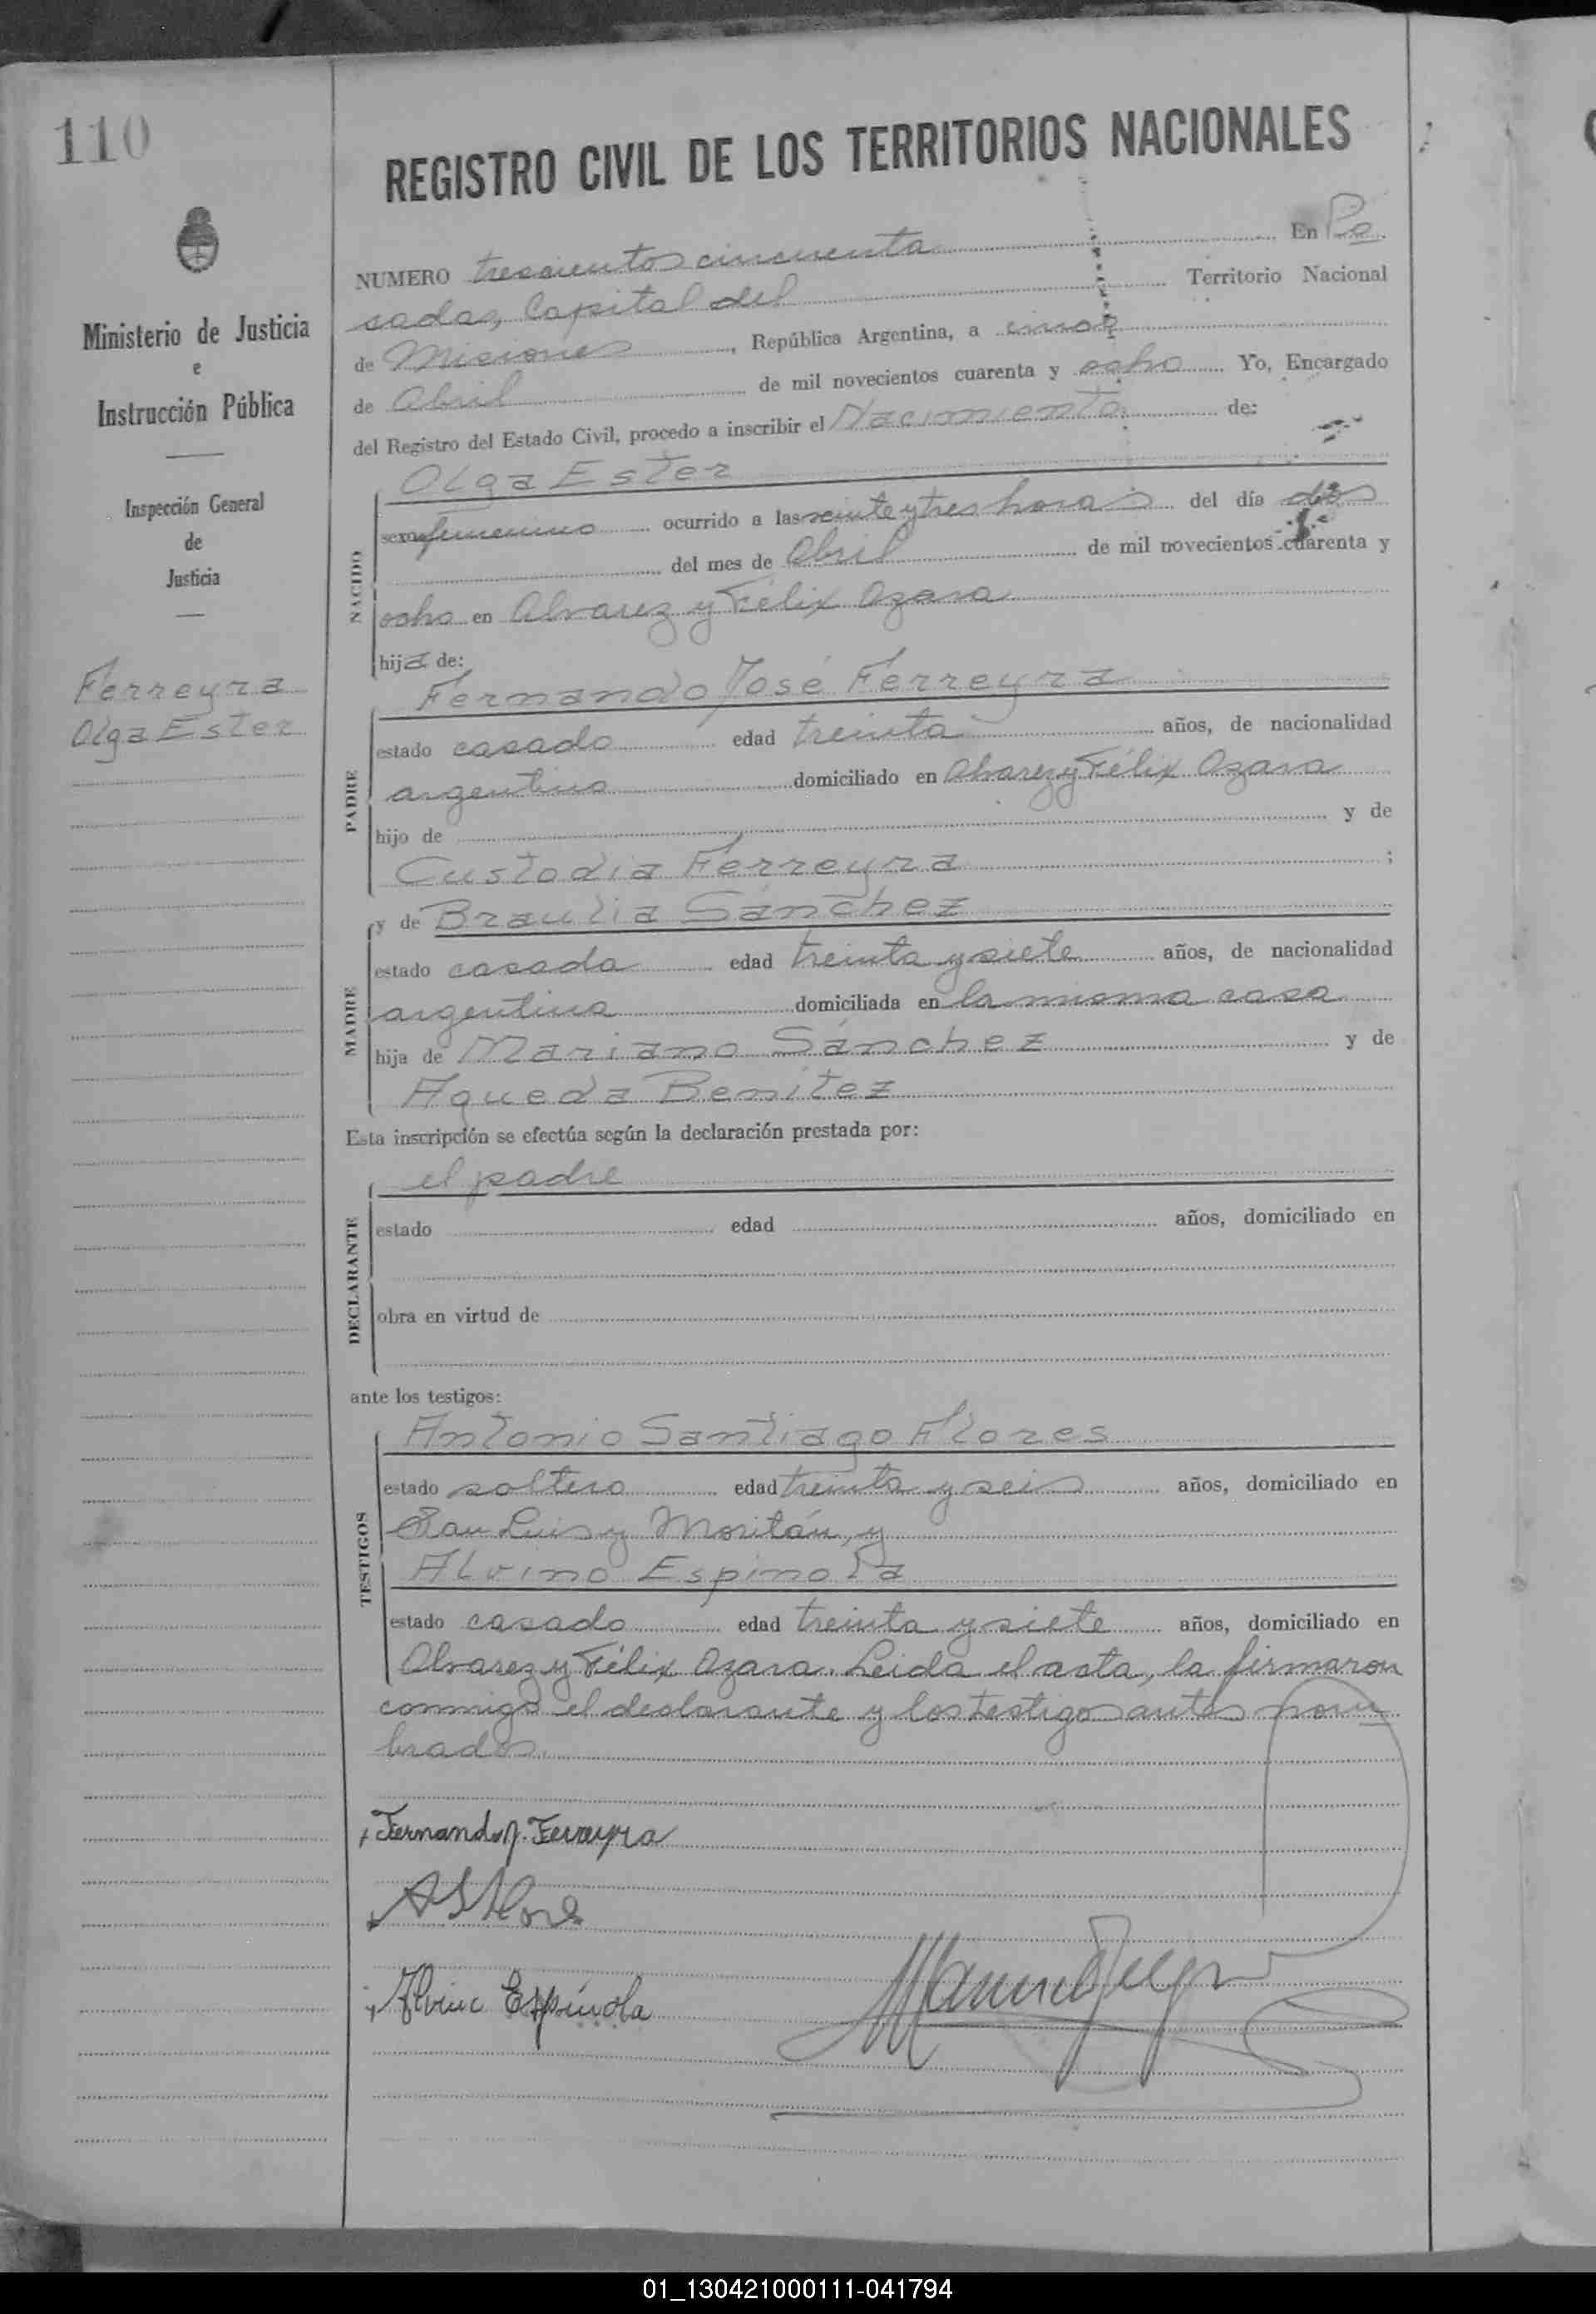 110
Ministerio de Justicia
e
Instrucción Pública
Inspección General
de
Justicia
Ferreyra
Olga Ester
REGISTRO CIVIL DE LOS TERRITORIOS NACIONALES
NUMERO trescientos cincuenta En Po
sadas, Capital del Territorio Nacional
de Misiones, República Argentina, a cinco
de Abril de mil novecientos cuarenta y ocho Yo, Encargado
del Registro del Estado Civil, procedo a inscribir el Nacimiento de:
Olga Ester
NACIDO
sexo femenino ocurrido a las veinte y tres horas del día dos
del mes de Abril de mil novecientos cuarenta y
ocho en Alvarez y Félix Azara
hija de:
Fernando José Ferreyra
PADRE
estado casado edad treinta años, de nacionalidad
argentino domiciliado en Alvarez y Félix Azara
hijo de y de
Custodia Ferreyra ;
y de Braulia Sánchez
MADRE
estado casada edad treinta y siete años, de nacionalidad
argentina domiciliada en la misma casa
hija de Mariano Sánchez y de
Agueda Benítez
Esta inscripción se efectúa según la declaración prestada por:
el padre
DECLARANTE
estado edad años, domiciliado en
obra en virtud de
ante los testigos:
Antonio Santiago Flores
TESTIGOS
estado soltero edad treinta y seis años, domiciliado en
San Luis y Moritán, y
Alvino Espinola
estado casado edad treinta y siete años, domiciliado en
Alvarez y Félix Azara. Leida el acta, la firmaron
conmigo el declarante y los testigos antes nom
brados.
Fernando J. Ferreyra
A S Flores
Alvino Espínola
01_130421000111-041794